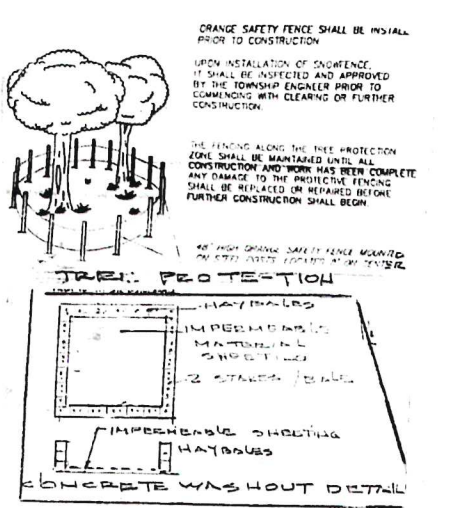 ORANGE SAFETY FENCE SHALL BE INSTALL
PRIOR TO CONSTRUCTION
UPON INSTALLATION OF SNOWFENCE,
IT SHALL BE INSPECTED AND APPROVED
BY THE TOWNSHIP ENGINEER PRIOR TO
COMMENCING WITH CLEARING OR FURTHER
CONSTRUCTION.
THE FENCING ALONG THE TREE PROTECTION
ZONE SHALL BE MAINTAINED UNTIL ALL
CONSTRUCTION AND WORK HAS BEEN COMPLETE
ANY DAMAGE TO THE PROTECTIVE FENCING
SHALL BE REPLACED OR REPAIRED BEFORE
FURTHER CONSTRUCTION SHALL BEGIN.
48" HIGH ORANGE SAFETY FENCE MOUNTED
ON STEEL POSTS LOCATED ON CENTER
TREE PROTECTION
HAYBALES
IMPERMEABLE
MATERIAL
SHEETING
2 STAKES / BALE
IMPERMEABLE SHEETING
HAYBALES
CONCRETE WASHOUT DETAIL